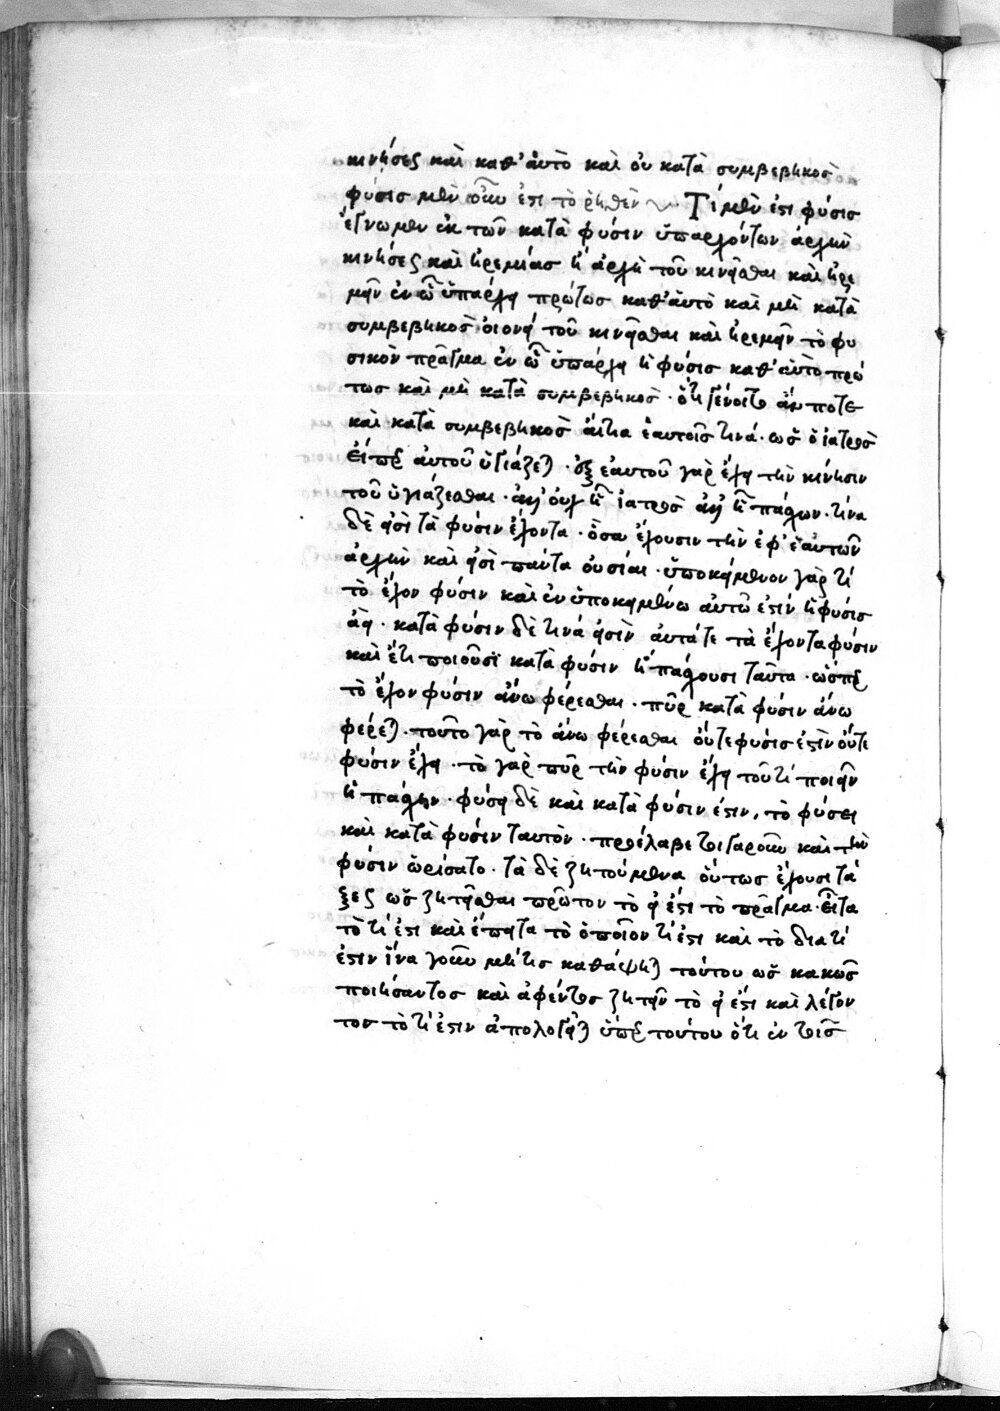 κινήσεως καὶ καθ' αὑτὸ καὶ οὐ κατὰ συμβεβηκὸς
φύσις μὲν οὖν ἐστι τὸ ῥηθὲν Τί μέν ἐστι φύσις
ἔγνωμεν ἐκ τῶν κατὰ φύσιν ὑπαρχόντων ἀρχὴν
κινήσεως καὶ ἠρεμίας ἢ ἀρχὴ τοῦ κινεῖσθαι καὶ ἠρε
μεῖν ἐν ᾧ ὑπάρχει πρώτως καθ' αὑτὸ καὶ μὴ κατὰ
συμβεβηκὸς οἱονεὶ τοῦ κινεῖσθαι καὶ ἠρεμεῖν τὸ φυ
σικὸν πρᾶγμα ἐν ᾧ ὑπάρχει ἡ φύσις καθ' αὑτὸ πρώ
τως καὶ μὴ κατὰ συμβεβηκὸς · ὅτι γένοιτο ἄν ποτε
καὶ κατὰ συμβεβηκὸς αἴτια ἑαυτοῖς τινά · ὡς ὁ ἰατρὸς
εἴπερ αὐτοῦ ὑγιάζεται · ἐξ ἑαυτοῦ γὰρ ἔχει τὴν κίνησιν
τοῦ ὑγιάζεσθαι · ἀλλ' οὐχ ᾗ ἰατρὸς ἀλλ' ᾗ πάσχων · τίνα
δὲ εἰσὶ τὰ φύσιν ἔχοντα · ὅσα ἔχουσιν τὴν ἐφ' ἑαυτῶν
ἀρχὴν καὶ εἰσὶ πάντα οὐσίαι · ὑποκείμενον γάρ τι
τὸ ἔχον φύσιν καὶ ἐν ὑποκειμένῳ αὐτῷ ἐστίν ἡ φύσις
ἀεί · κατὰ φύσιν δὲ τινά εἰσὶν αὐτά τε τὰ ἔχοντα φύσιν
καὶ ἔτι ποιοῦσι κατὰ φύσιν ἢ πάσχουσι ταῦτα · ὥσπερ
τὸ ἔχον φύσιν ἄνω φέρεσθαι · πῦρ κατὰ φύσιν ἄνω
φέρεται · τοῦτο γὰρ τὸ ἄνω φέρεσθαι οὔτε φύσις ἐστὶν οὔτε
φύσιν ἔχει · τὸ γὰρ πῦρ τὴν φύσιν ἔχει τοῦ τί ποιεῖν
ἢ πάσχειν · φύσει δὲ καὶ κατὰ φύσιν ἐστιν, τὸ φύσει
καὶ κατὰ φύσιν ταυτὸν · προέλαβε καὶ τὴν
φύσιν ὡρίσατο · τὰ δὲ ζητούμενα οὕτως ἔχουσι τά
ξεως ὡς ζητεῖσθαι πρῶτον τὸ εἰ ἔστι τὸ πρᾶγμα · εἶτα
τὸ τί ἐστι καὶ ἔπειτα τὸ ὁποῖον τί ἐστι καὶ τὸ διατί
ἐστιν ἵνα γοῦν μή τις καθάψηται τούτου ὡς κακῶς
ποιήσαντος καὶ ἀφέντος ζητεῖν τὸ εἰ ἔστι καὶ λέγον
τον τὸ τί ἐστιν ἀπολογεῖται ὑπὲρ τούτου ὅτι ἐν τοῖς